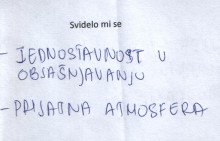 Svidelo mi se
- JEDNOSTAVNOST U
OBJAŠNJAVANJU
- PRIJATNA ATMOSFERA